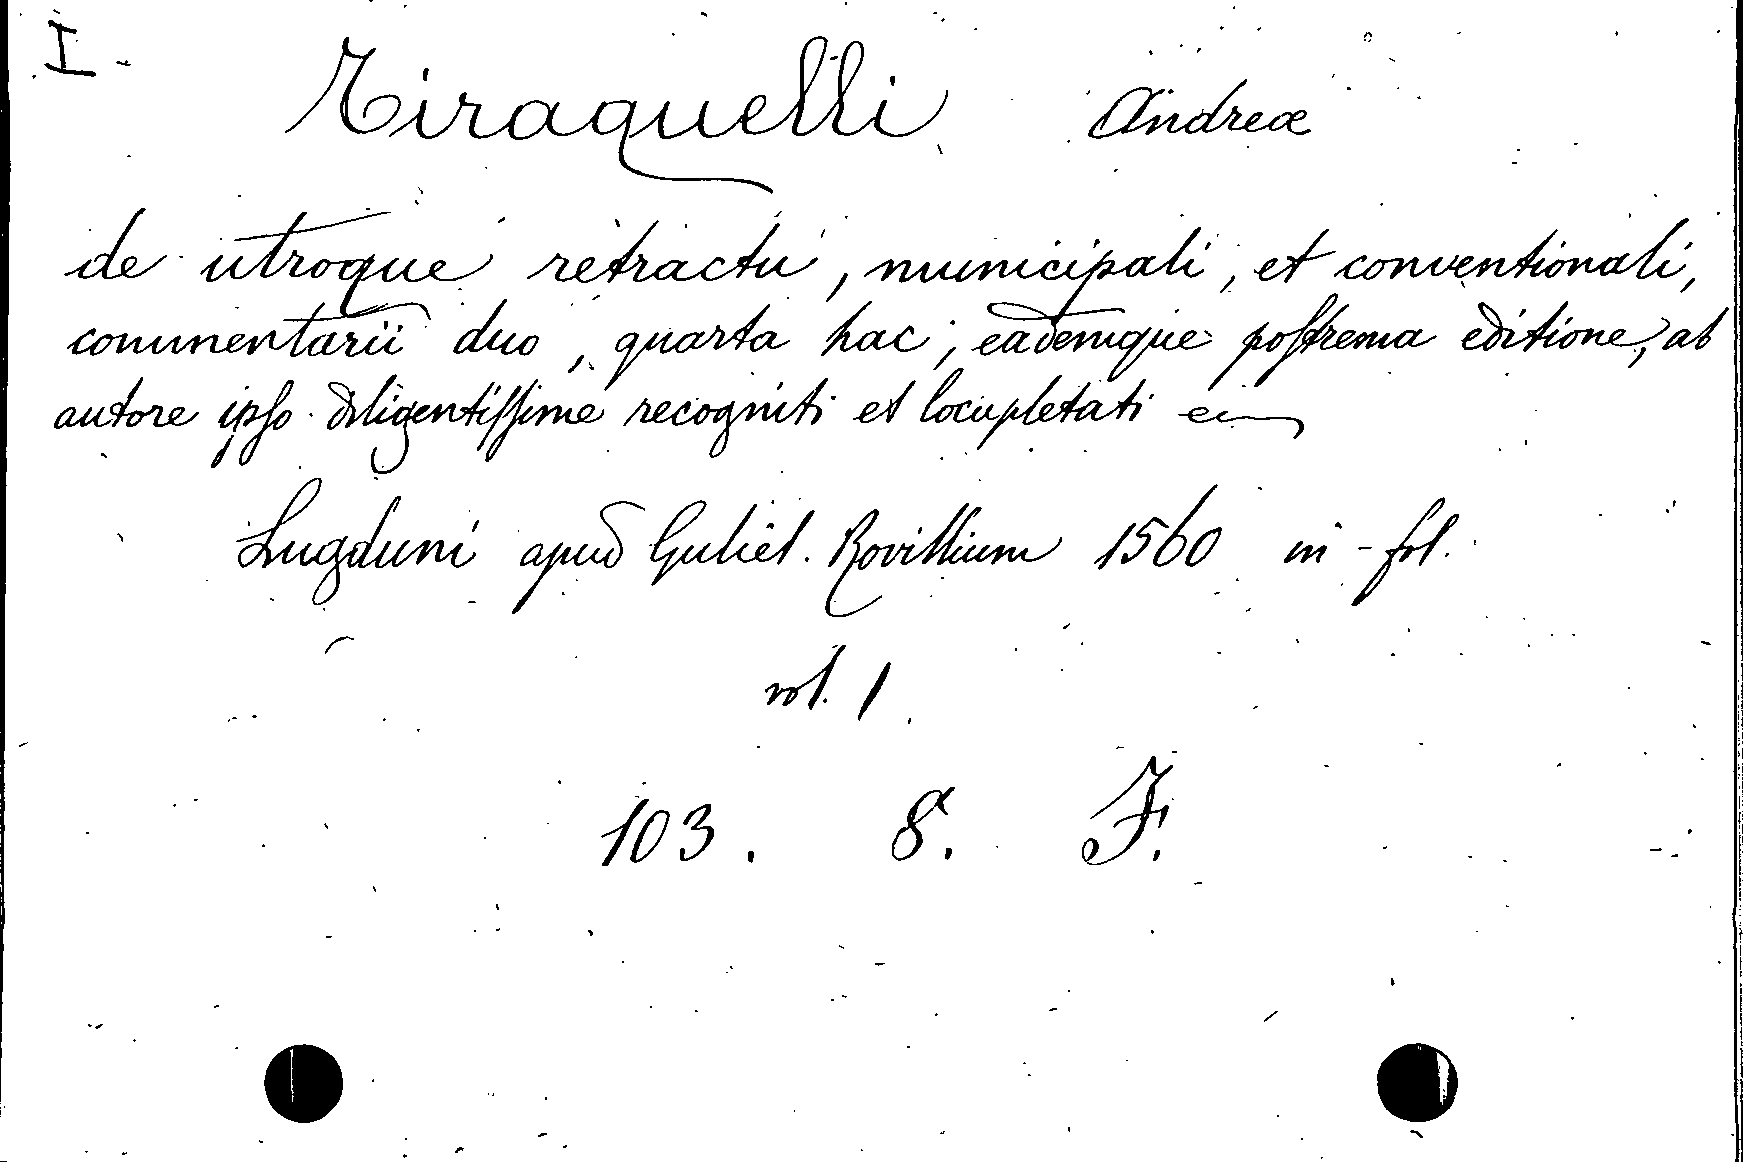 I
Tiraquelli Andreæ
de utroque retractu, municipali, et conventionali,
commentarii duo, quarta hac, eademque postrema editione, ab
autore ipso diligentissime recogniti et locupletati
Lugduni apud Guliel. Rovillium 1560 in-fol.
vol. 1
103. 8. F.